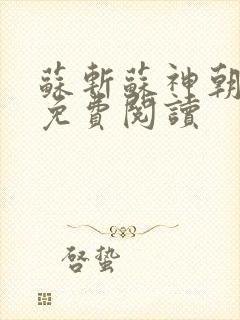 蘇斬蘇神朝
免費閱讀
啓蟄